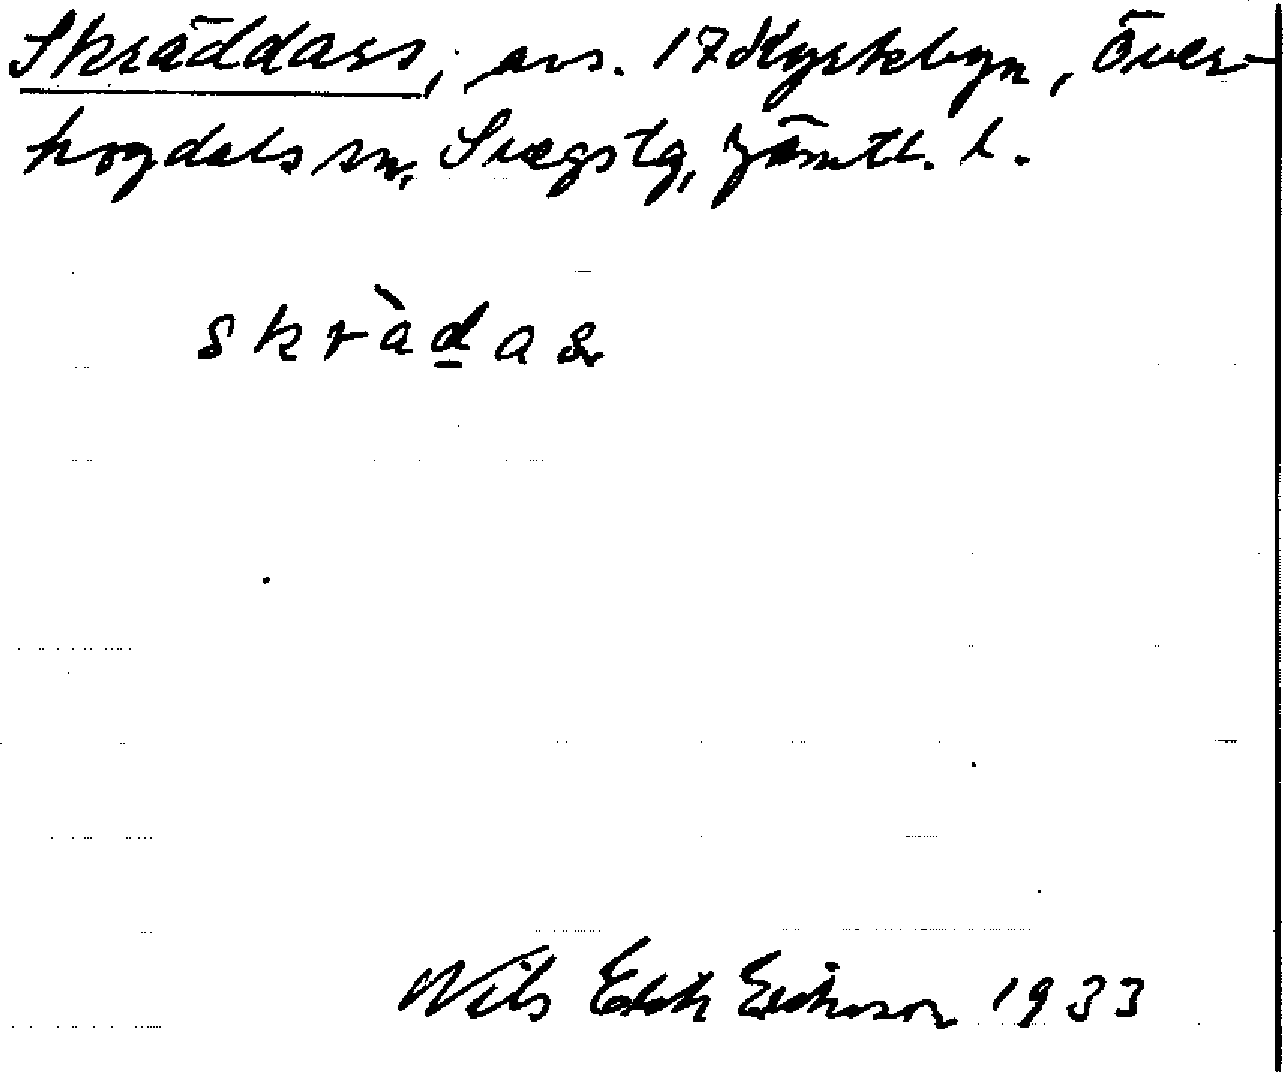 Skräddars, ars. 17 Kyrkbyn, Över-
hogdals sn, Svegs tg, Jämtl. l.
skràdas
Nils Erik Eriksson 1933